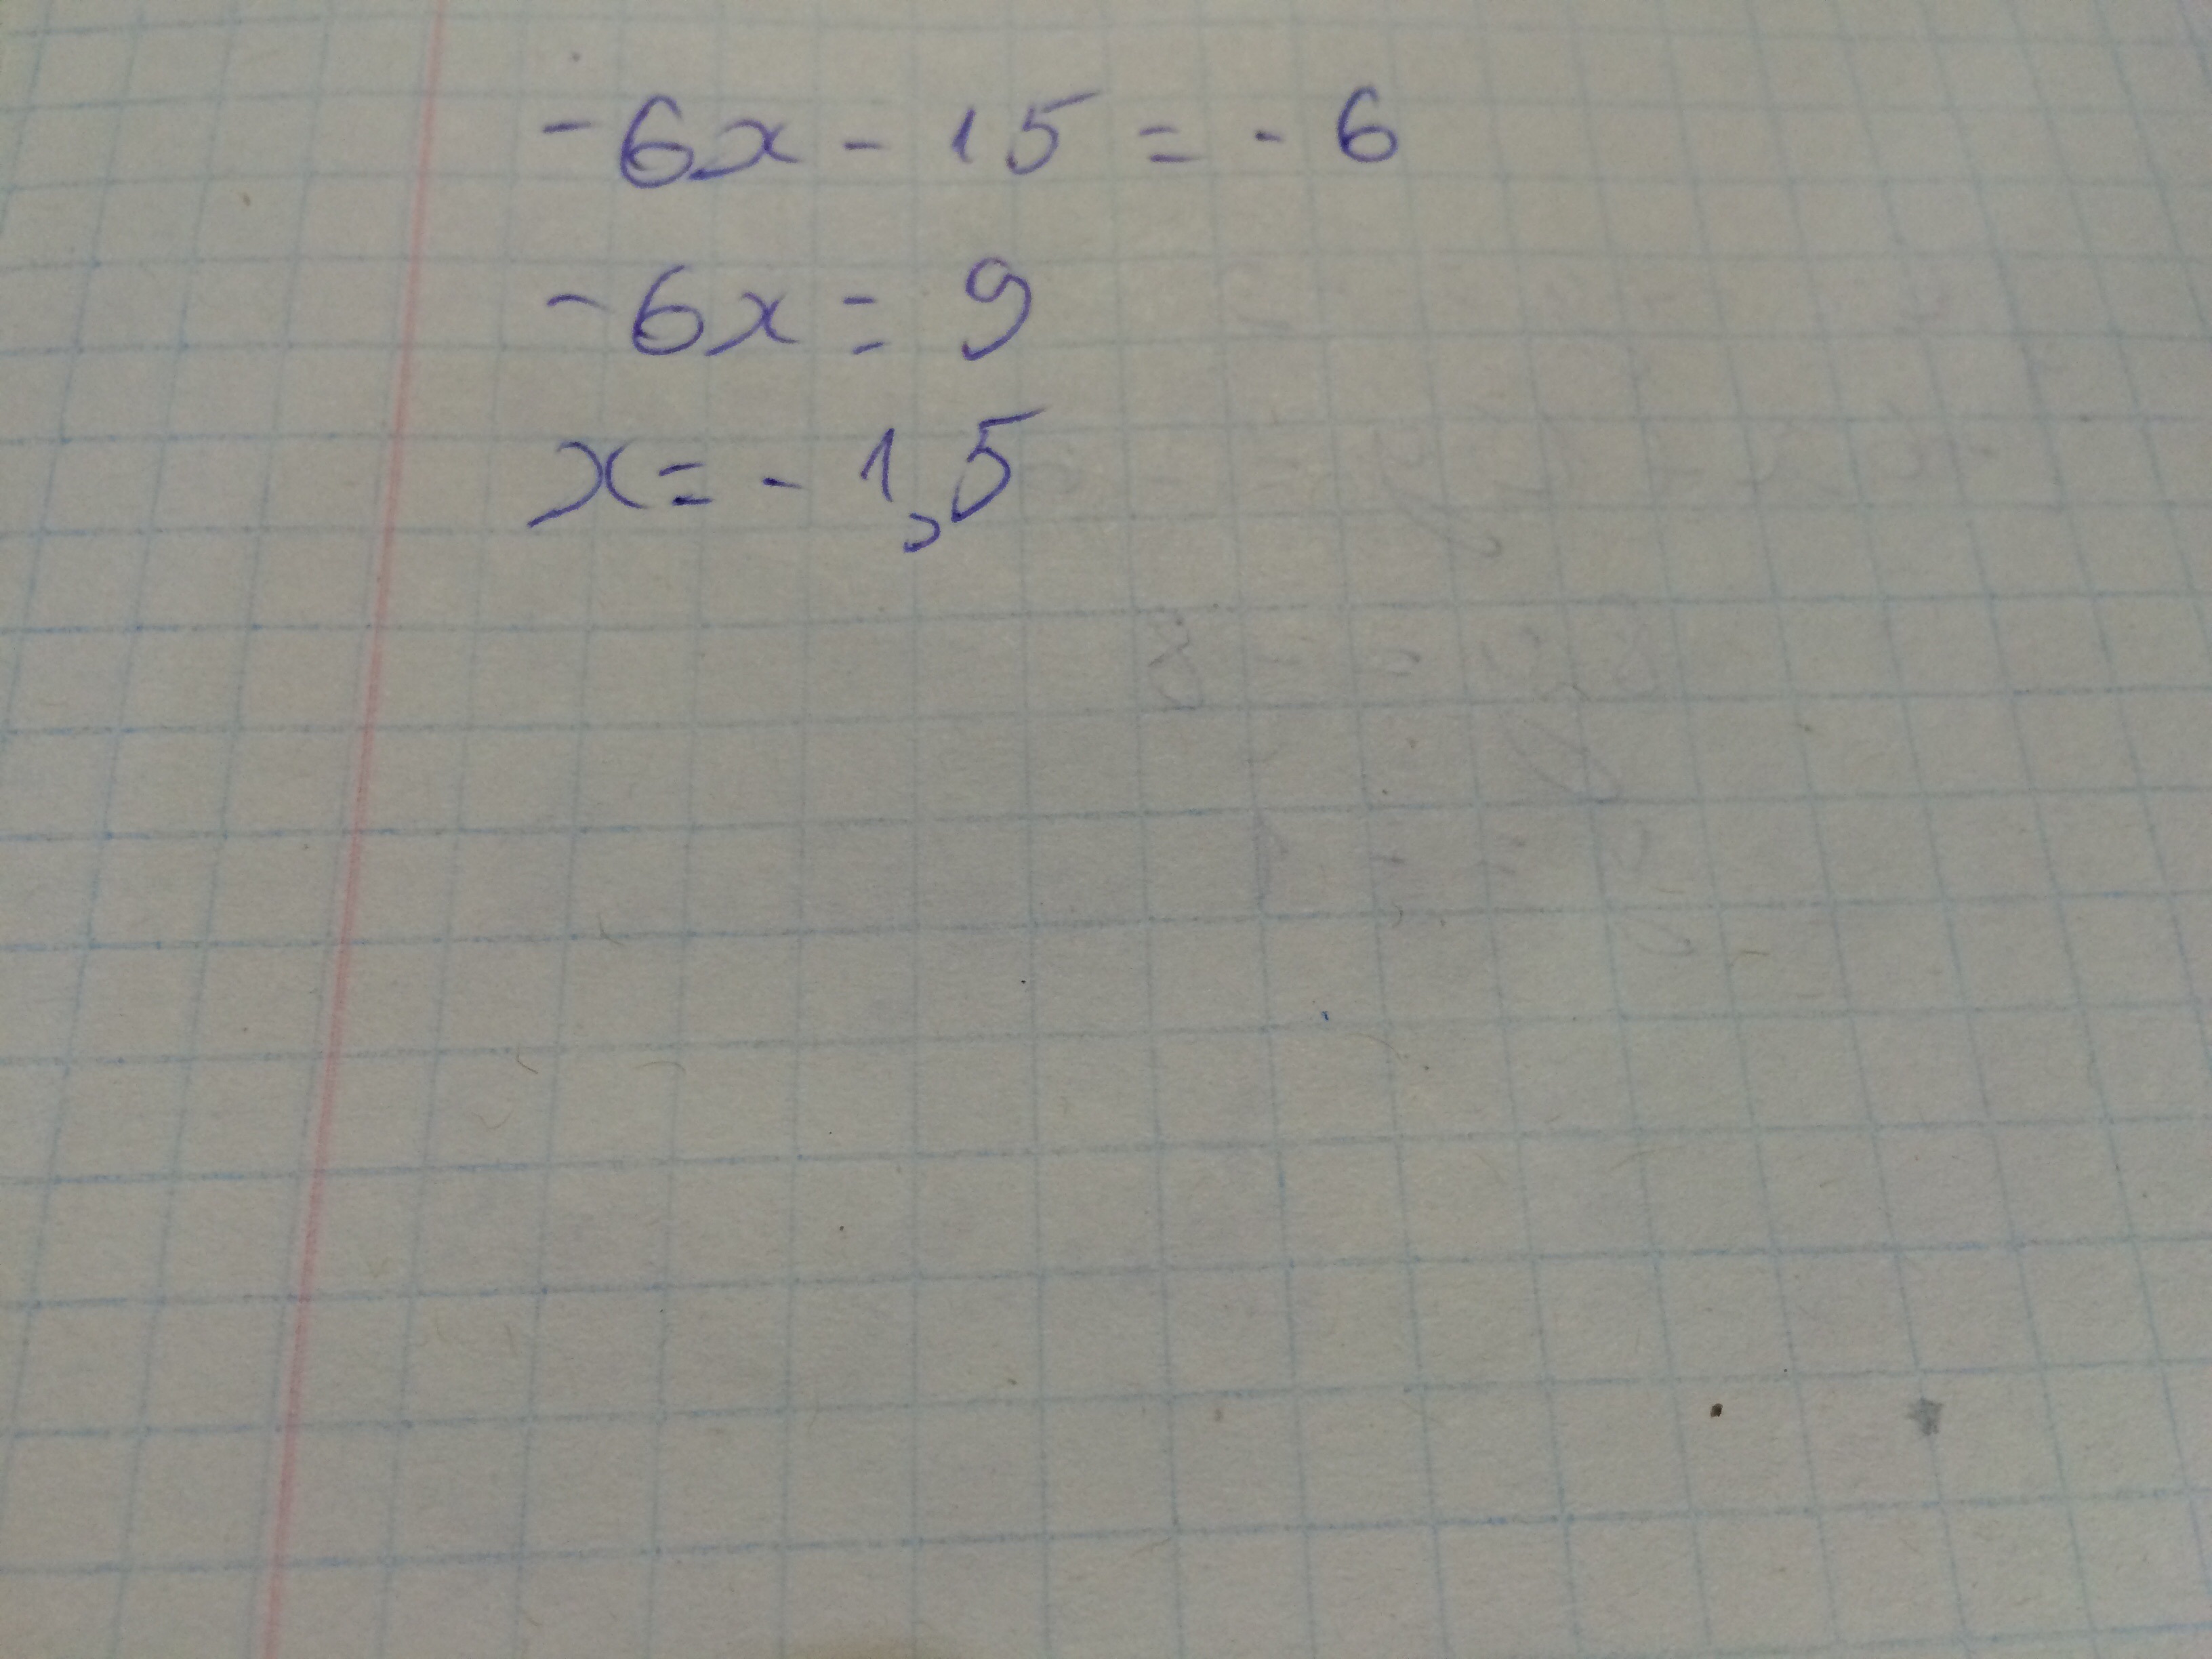 -6x - 15 = - 6
-6x = 9
x = - 1,5